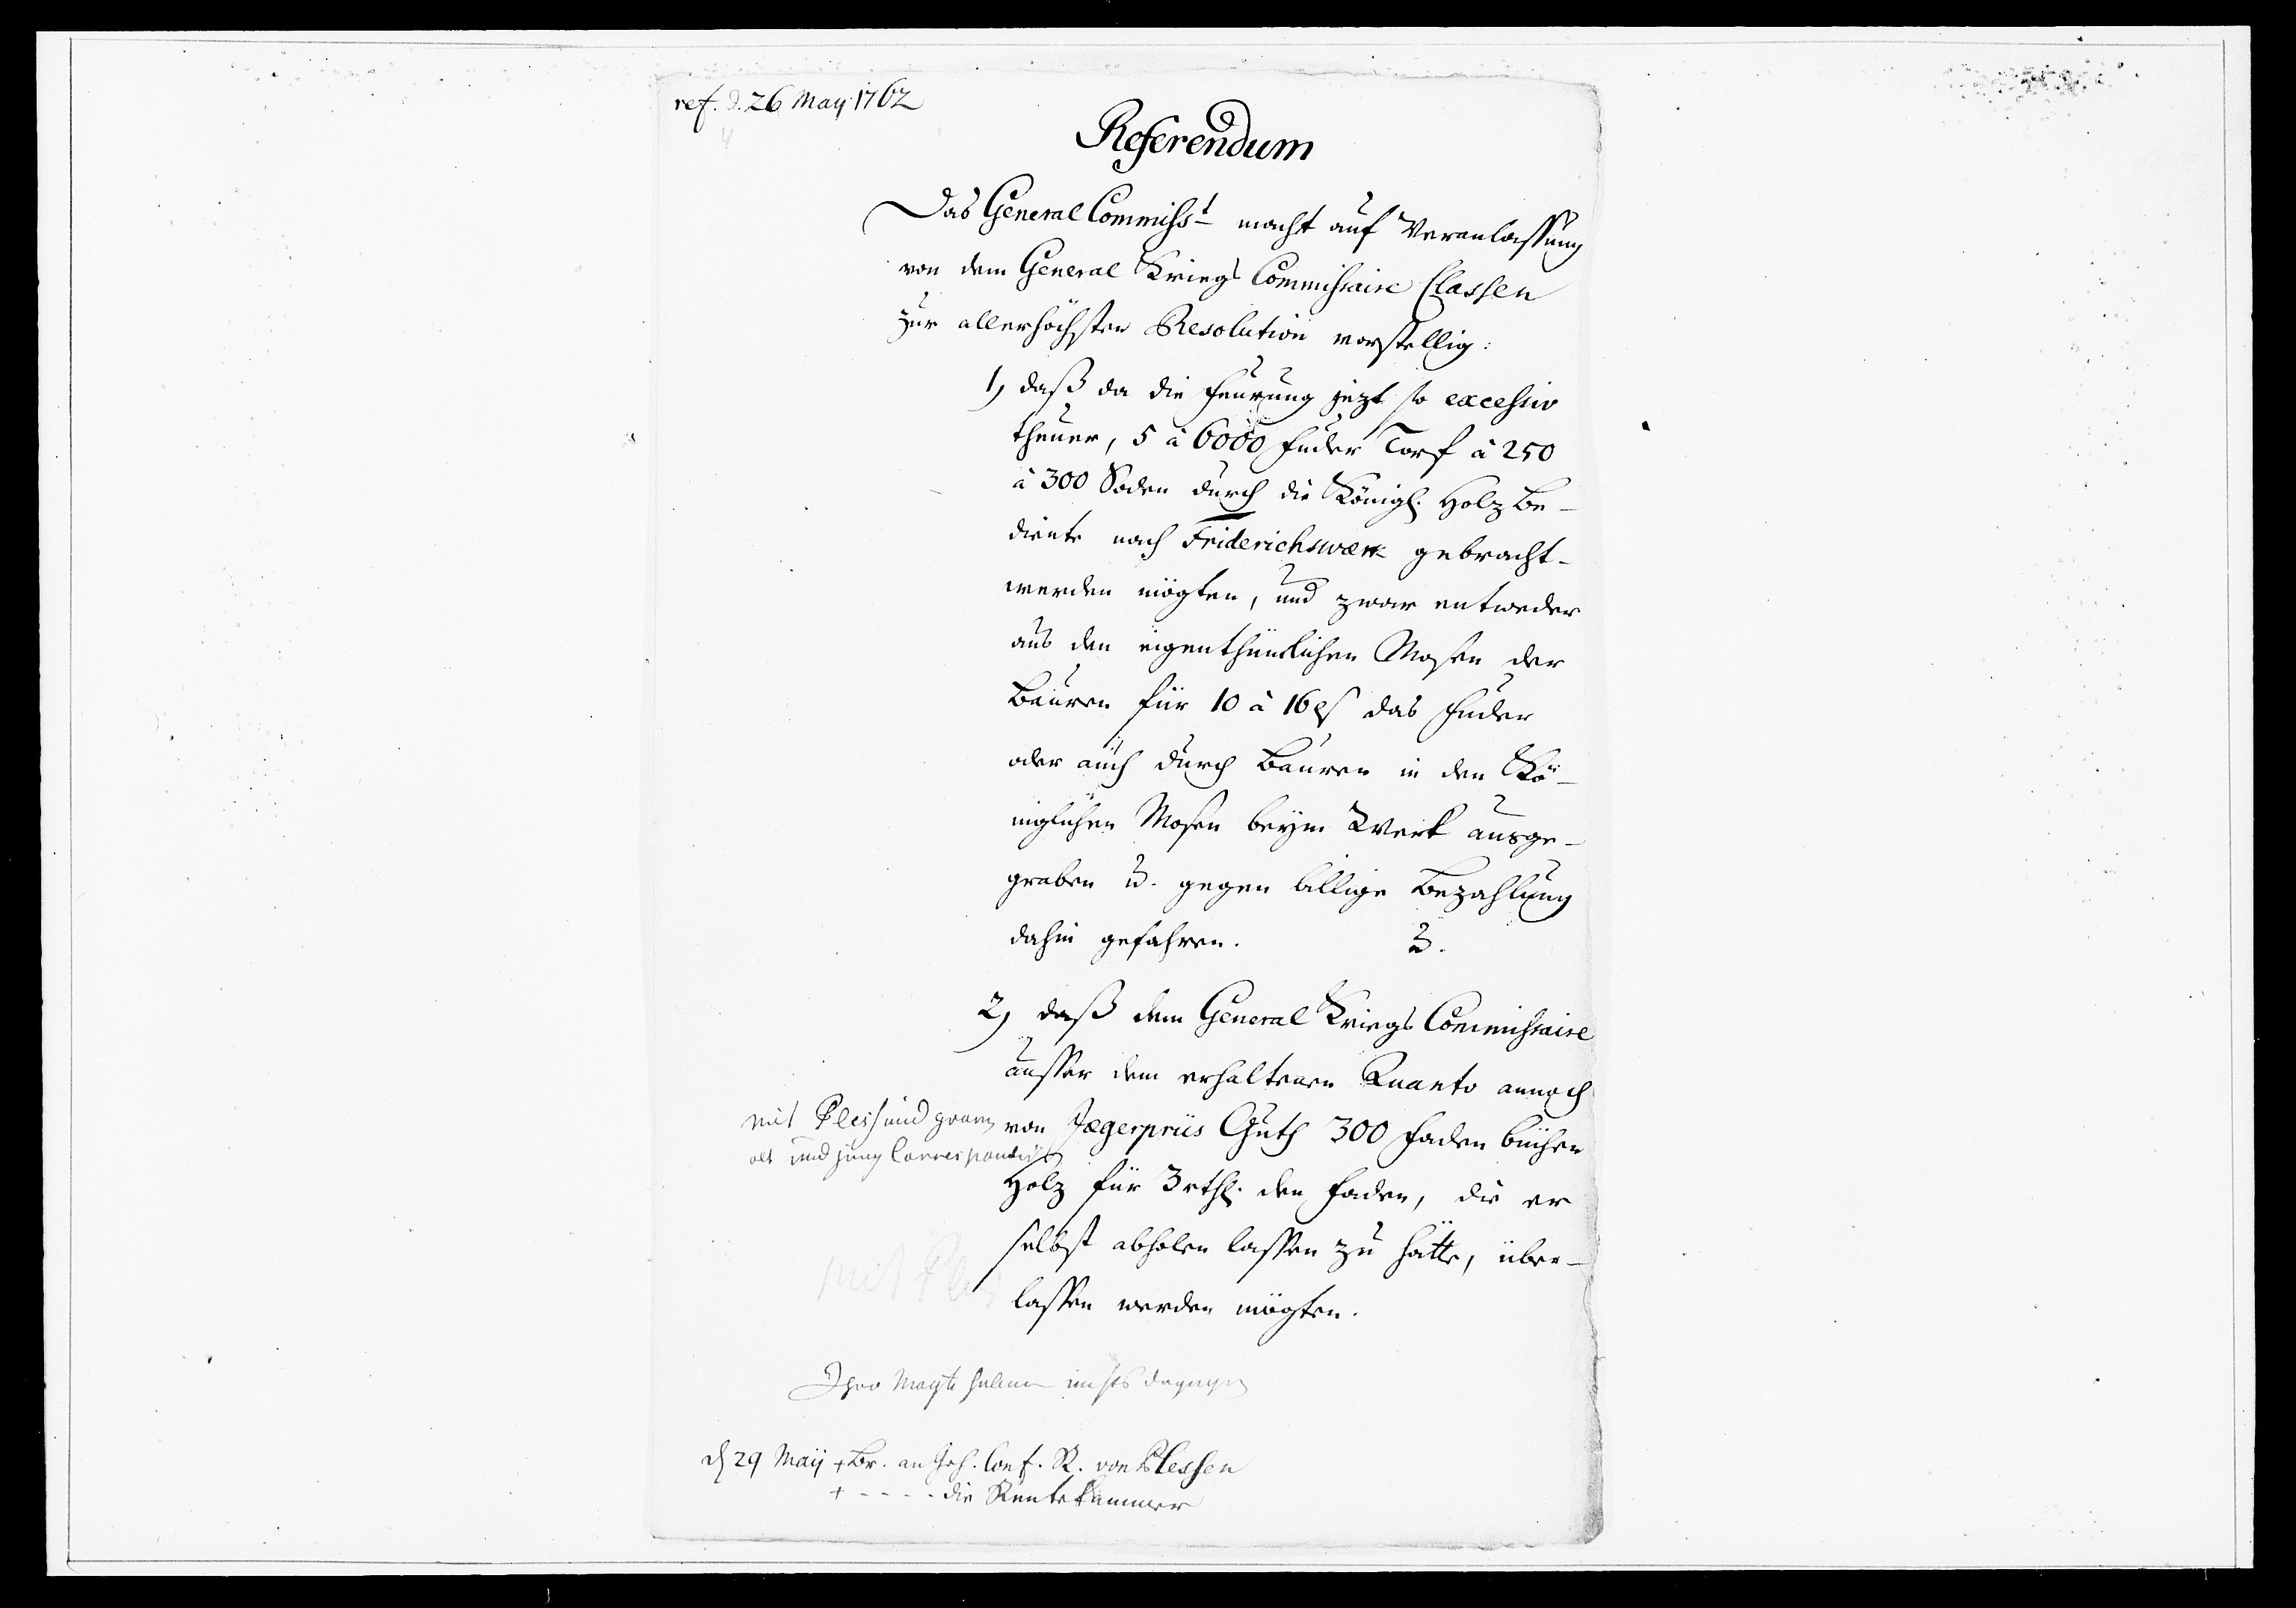 ref. d. 26 May 1762
Referendum
Das General Commiss.t macht auf Veranlassung
von dem General Kriegs Commissaire Classen
zur allerhöchsten Resolution vorstellig:
1, daß da die Feurung jezt so excessiv
theuer, 5 à 6000 Fuder Torf à 250
à 300 Soden durch die Königl. Holz Be-
diente nach Friderichswærk gebracht
werden mögten, und zwar entweder
aus den eigenthümlichen Mosen der
Bauren für 10 à 16 ß das Fuder
oder auch durch Bauren in den Kö-
niglichen Mosen beym Werk ausge-
graben u. gegen billige Bezahlung
dahin gefahren. u.
2, daß dem General Kriegs Commissaire
ausser dem erhaltenen Quanto annoch
von Jægerpriis Guth 300 Faden büchen
Holz für 3 rthl. den Faden, die er
selbst abholen lassen zu hätte, über-
lassen werden mögten.
mit Pless und
alt und jung
mit Ples
Ihro Mayts haben nichts dagegen
d 29 Maij + Br. an Geh. Conf. R. von Plessen
+ - - - - die Rentekammer